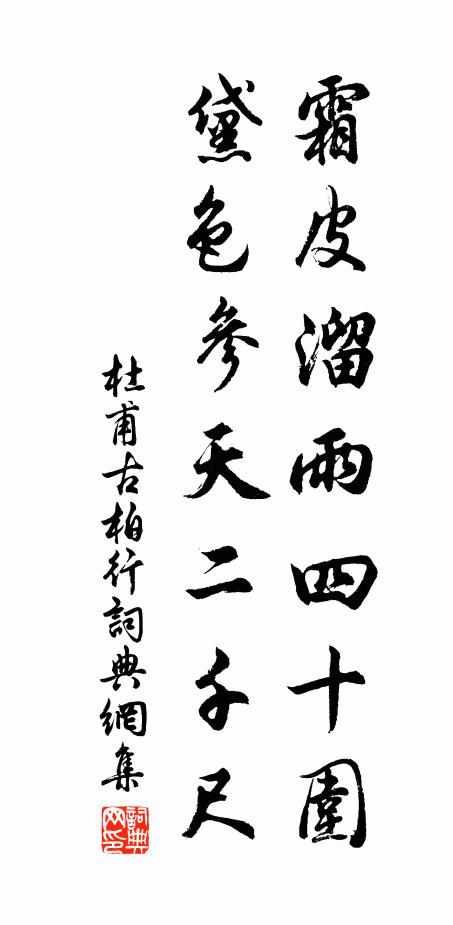 霜皮溜雨四十圍
黛色參天二千尺
杜甫古柏行詞典網集
詞典網印